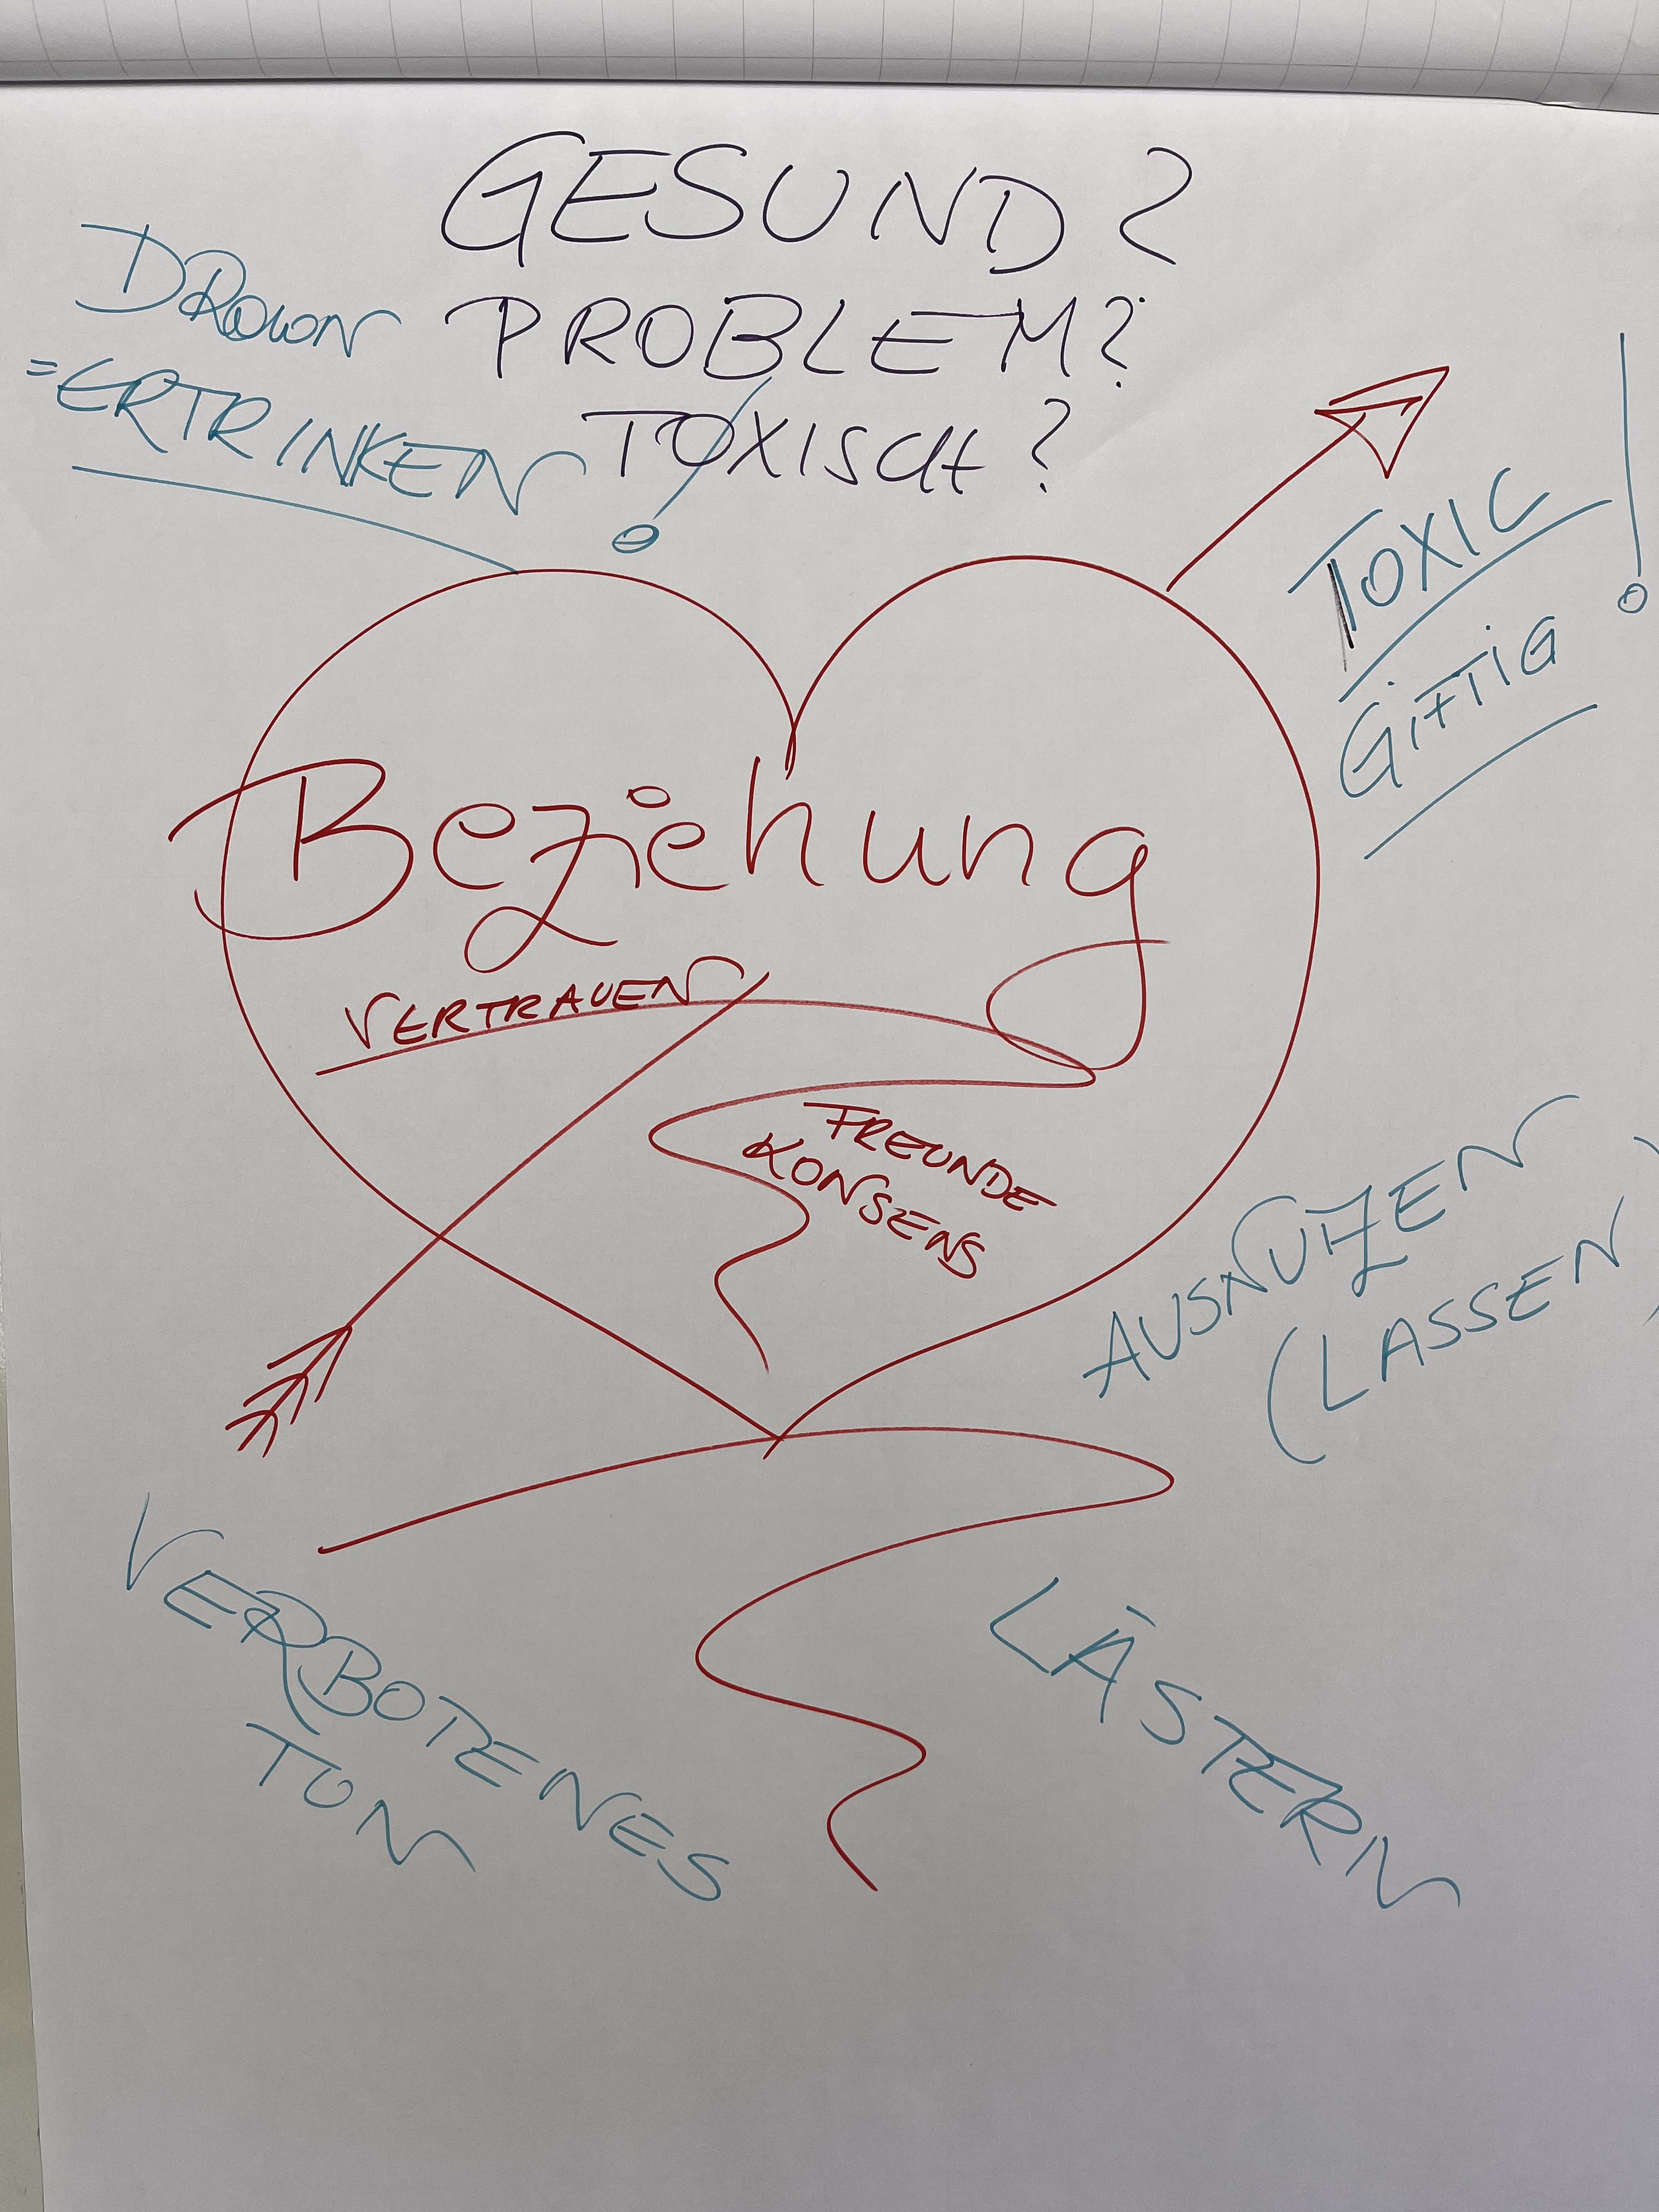 GESUND?
PROBLEM?
TOXISCH?
DROWN
=ERTRINKEN !
TOXIC !
GiFTiG
Beziehung
VERTRAUEN
FREUNDE
KONSENS
AUSNUTZEN
(LASSEN)
VERBOTENES
TUN
LÄSTERN